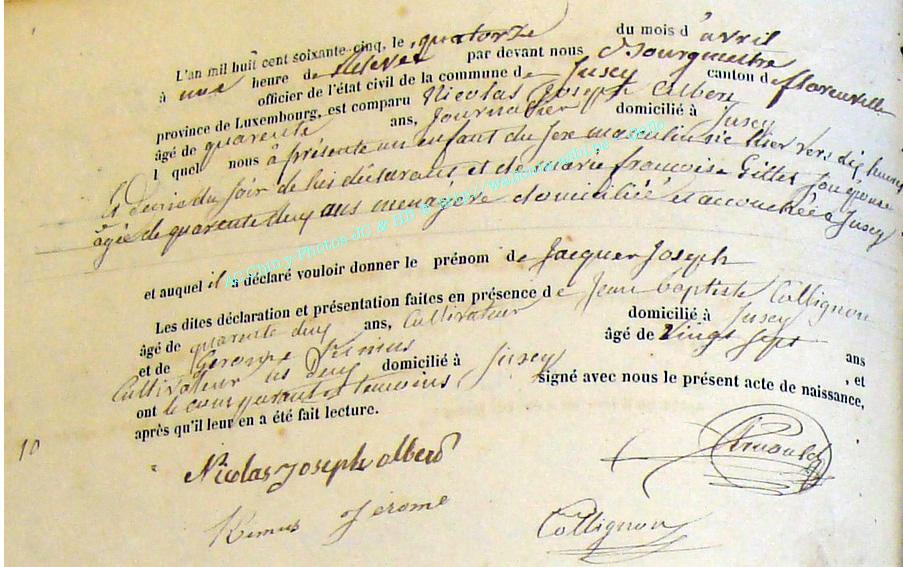 L'an mil huit cent soixante-cinq, le quatorze du mois d'avril
à une heure de relevée par devant nous Bourgmestre
officier de l'état civil de la commune de Jusey canton de florenville
province de Luxembourg, est comparu Nicolas Joseph Albert
âgé de quarente ans, Journalier domicilié à Jusey
l quel nous à présenté un enfant du sexe masculin né hier vers dix heures
et demie du soir de lui déclarant et de marie francoise Gillet son epouse
âgée de quarente deux ans menagère domiciliée et accouchée à Jusey
et auquel il a déclaré vouloir donner le prénom de Jacques Joseph
Les dites déclaration et présentation faites en présence de Jean baptiste Collignon
âgé de quarente deux ans, Cultivateur domicilié à Jusey
et de Gerome Remus âgé de Vingt sept ans
Cultivateur domicilié à Jusey, et
ont le comparant et temoins signé avec nous le présent acte de naissance,
après qu'il leur en a été fait lecture.
10
Nicolas joseph albert
Remus Jerome
Collignon
AC Chiny-Photos JC & HB